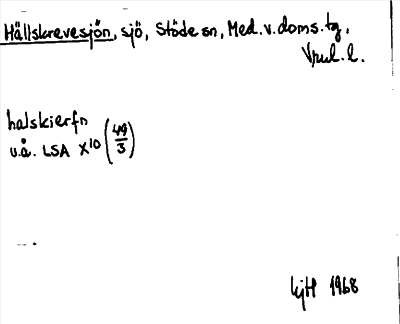 Hällskrevesjön, sjö, Stöde sn, Med. v. doms. tg,
Vnl. l.
halskierfn
v.å. LSA X¹⁰ (49/3)
1968